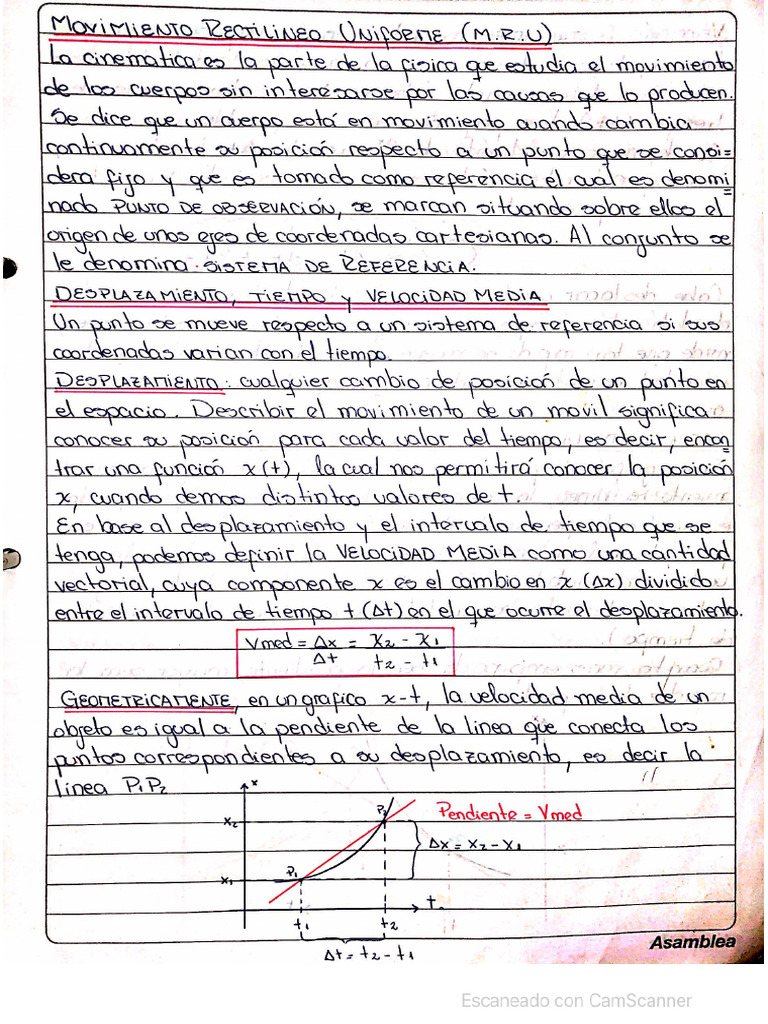 MOVIMIENTO RECTILINEO UNIFORME (M.R.U)
La cinematica es la parte de la fisica que estudia el movimiento
de los cuerpos sin interesarse por las causas que lo producen.
Se dice que un cuerpo está en movimiento cuando cambia
continuamente su posición respecto a un punto que se consi=
dera fijo y que es tomado como referencia el cual es denomi=
nado PUNTO DE OBSERVACIÓN, se marcan situando sobre ellos el
origen de unos ejes de coordenadas cartesianas. Al conjunto se
le denomina SISTEMA DE REFERENCIA.
DESPLAZAMIENTO, TIEMPO y VELOCIDAD MEDIA
Un punto se mueve respecto a un sistema de referencia si sus
coordenadas varian con el tiempo.
DESPLAZAMIENTO: cualquier cambio de posición de un punto en
el espacio. Describir el movimiento de un movil significa
conocer su posición para cada valor del tiempo, es decir, encon=
trar una función x(t), la cual nos permitirá conocer la posición
x, cuando demos distintos valores de t.
En base al desplazamiento y el intervalo de tiempo que se
tenga, podemos definir la VELOCIDAD MEDIA como una cantidad
vectorial, cuya componente x es el cambio en x (Δx) dividido
entre el intervalo de tiempo t (Δt) en el que ocurre el desplazamiento.
Vmed = Δx = x2 - x1
Δt t2 - t1
GEOMETRICAMENTE, en un grafico x-t, la velocidad media de un
objeto es igual a la pendiente de la linea que conecta los
puntos correspondientes a su desplazamiento, es decir la
linea P1P2
x
P2
Pendiente = Vmed
x2
Δx = x2 - x1
P1
x1
t
t1 t2
Δt = t2 - t1
Asamblea
Escaneado con CamScanner